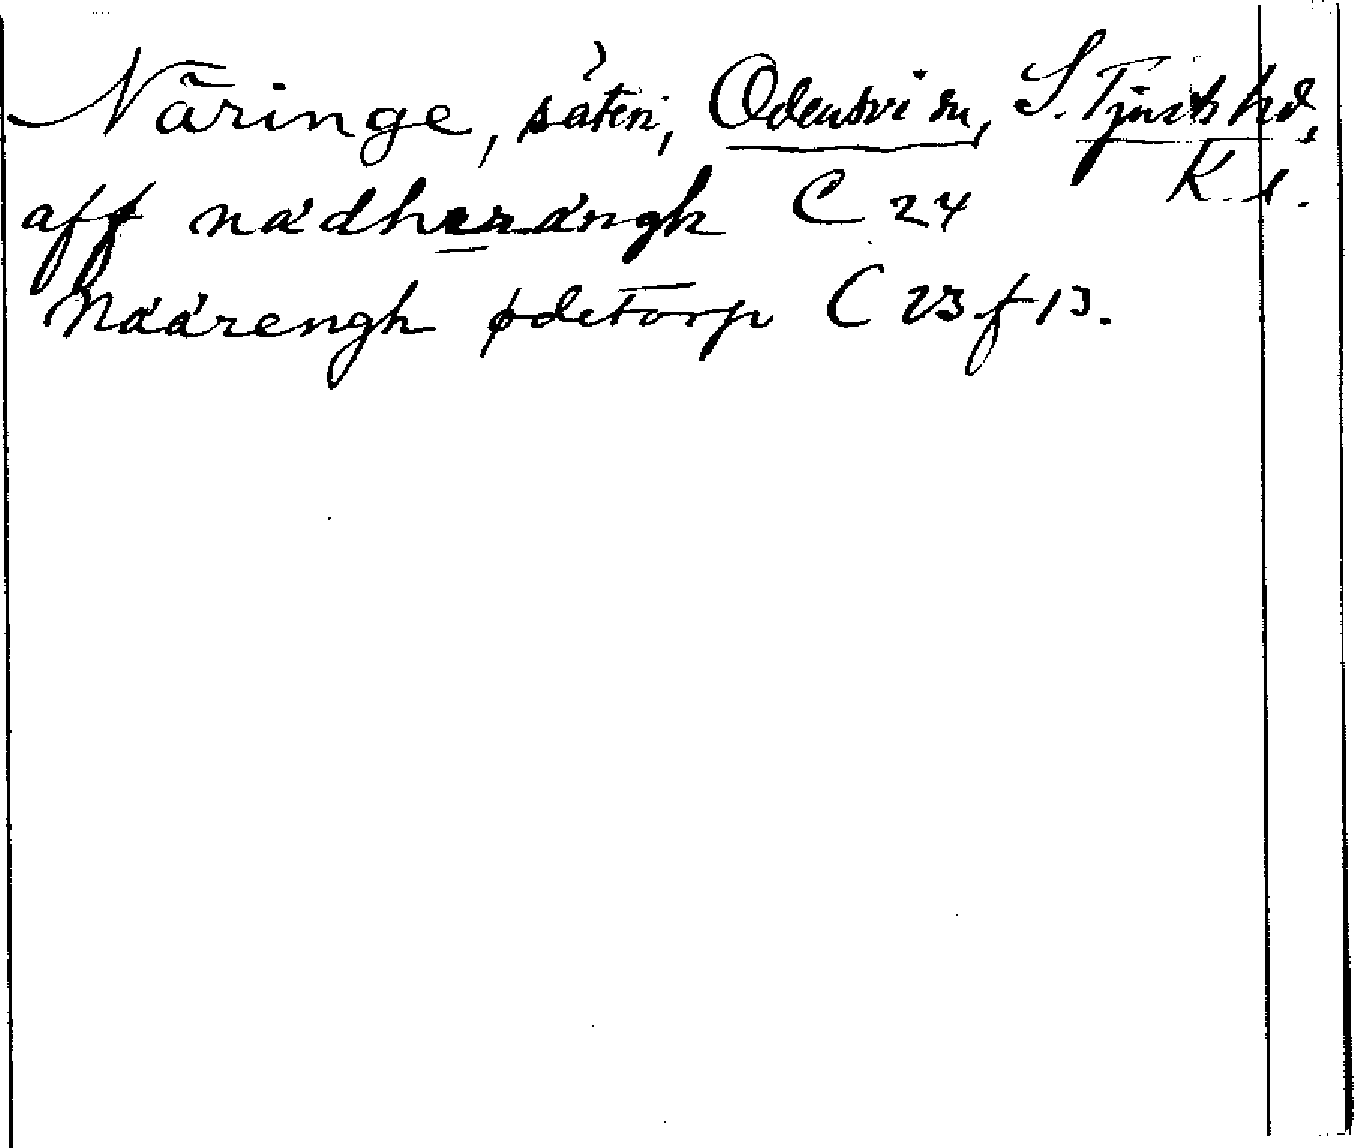 Näringe, säteri, Odensvi sn, S. Tjusts hd,
K. l.
aff nädherängh C 24
Näärengh ødetorp C 23 f 13.